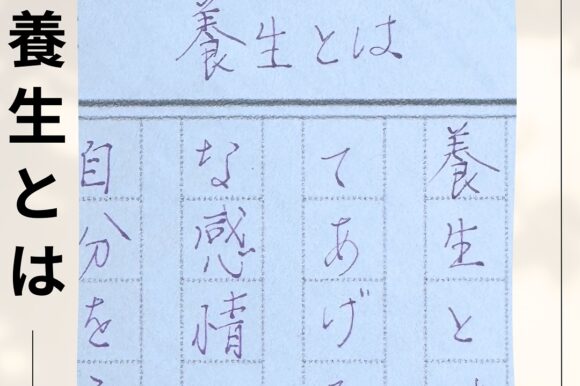 養生とは
養生とは
養生と
てあげ
な感情
自分を